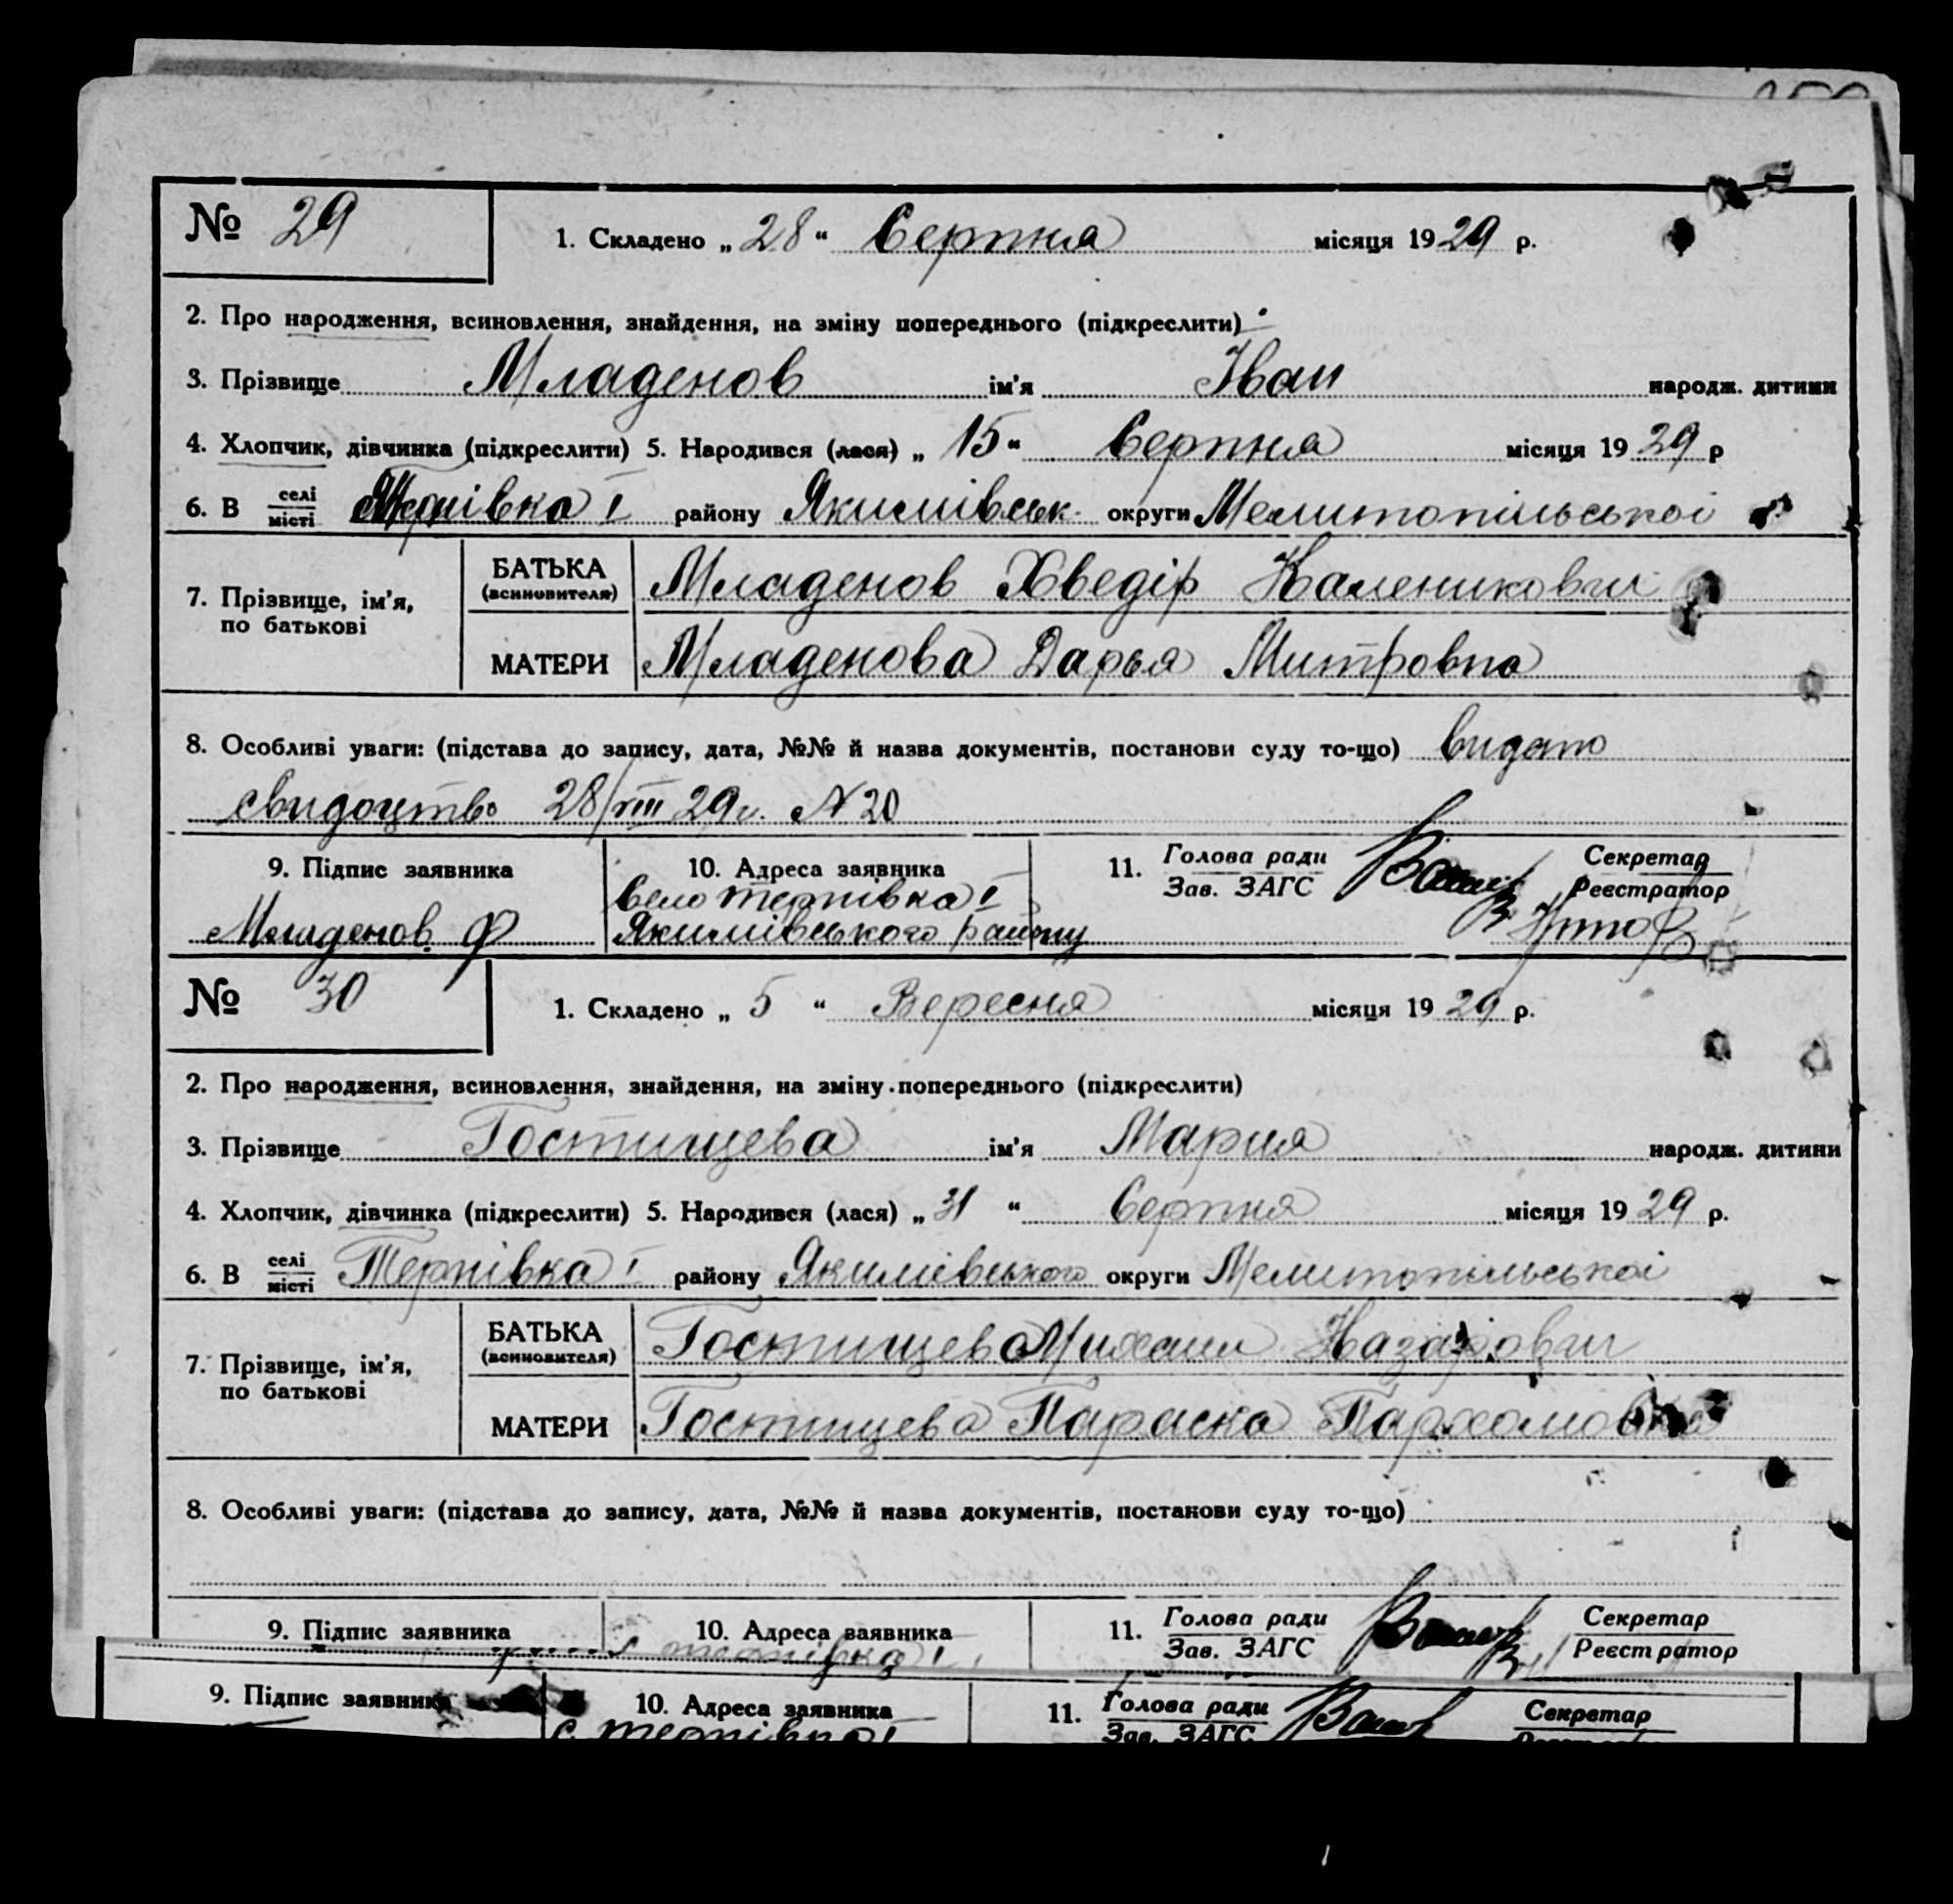 № 29
1. Складено „ 28 “ Серпня місяця 1929 р.
2. Про народження, всиновлення, знайдення, на зміну попереднього (підкреслити)
3. Прізвище Младенов ім'я Іван народж. дитини
4. Хлопчик, дівчинка (підкреслити) 5. Народився (лася) „ 15 “ Серпня місяця 1929 р
6. В селі місті Тернівка I району Якимівськ. округи Мелитопільськоі
7. Прізвище, ім'я, по батькові
БАТЬКА (всиновителя) Младенов Хведір Каленикович
МАТЕРИ Младенова Дарья Митровна
8. Особливі уваги: (підстава до запису, дата, №№ й назва документів, постанови суду то-що) видано
свидоцтво 28/VIII 29 г. N 20
9. Підпис заявника
Младенов Ф
10. Адреса заявника
село тернівка I
Якимівського району
11. Голова ради
Зав. ЗАГС
Секретар
Реєстратор
№ 30
1. Складено „ 5 “ Вересня місяця 1929 р.
2. Про народження, всиновлення, знайдення, на зміну попереднього (підкреслити)
3. Прізвище Гостищева ім'я Мария народж. дитини
4. Хлопчик, дівчинка (підкреслити) 5. Народився (лася) „ 31 “ Серпня місяця 1929 р.
6. В селі місті Тернівка I району Якимівського округи Мелитопільськоі
7. Прізвище, ім'я, по батькові
БАТЬКА (всиновителя) Гостищева Михаил Назарович
МАТЕРИ Гостищева Параска Пархомовна
8. Особливі уваги: (підстава до запису, дата, №№ й назва документів, постанови суду то-що)
9. Підпис заявника
10. Адреса заявника
11. Голова ради
Зав. ЗАГС
Секретар
Реєстратор
9. Підпис заявника
10. Адреса заявника
с. тернівка I
11. Голова ради
Зав. ЗАГС
Секретар